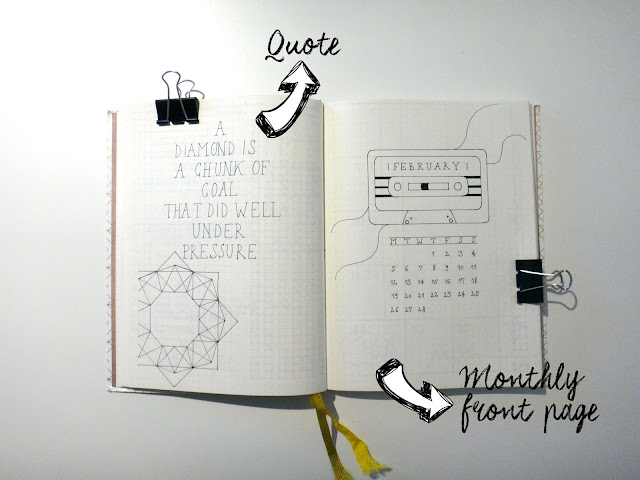 Quote
A
DIAMOND IS
A CHUNK OF
COAL
THAT DID WELL
UNDER
PRESSURE
FEBRUARY
M T W T F S S
1 2 3 4
5 6 7 8 9 10 11
12 13 14 15 16 17 18
19 20 21 22 23 24 25
26 27 28
Monthly
front page